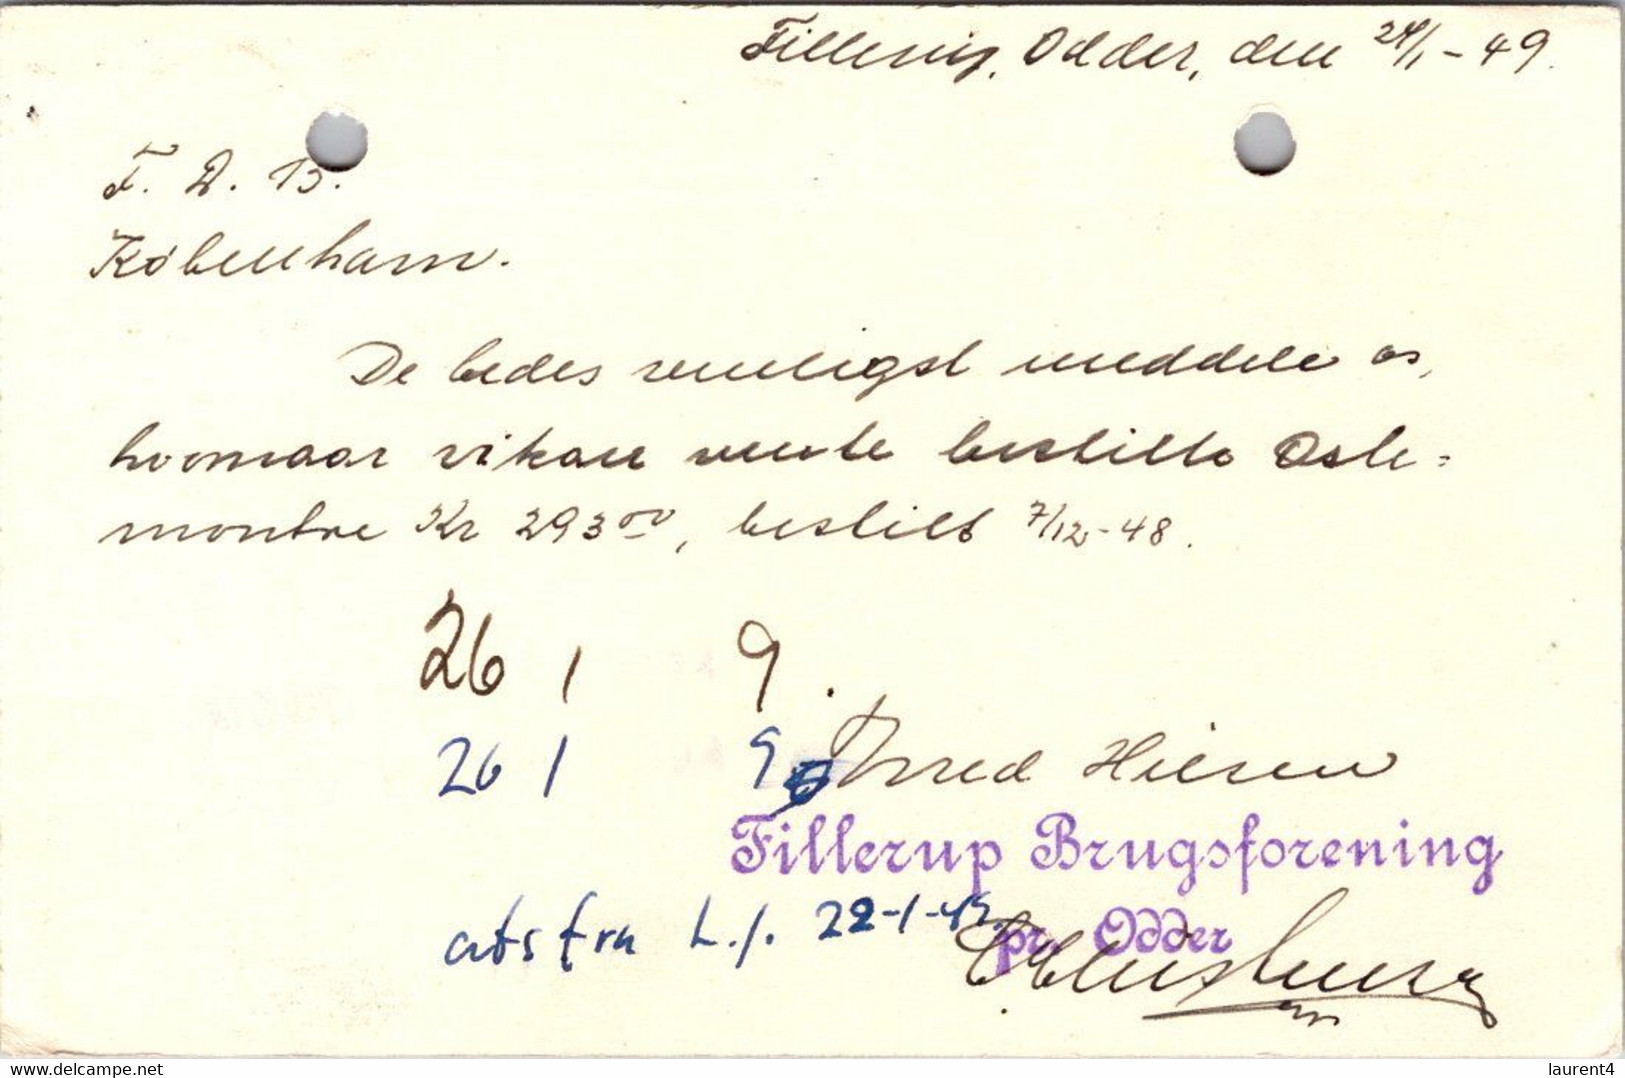 Fillerup, Odder, den 24/1-49.
F. D. B.
København.
De bedes venligst meddele os,
hvornaar vi kan vente bestilte Oste=
montre Kr 293 00, bestilt 7/12-48.
26 1 9
26 1 9
Fillerup Brugsforening
afs fra L.J. 22-1-49.
pr. Odder
delcampe.net
laurent4